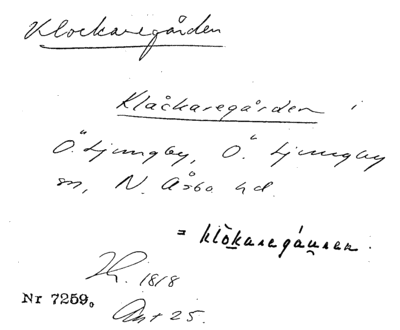 Klockaregården
Klåckaregården i
Ö. Ljungby, Ö. Ljungby
sn, N. Åsbo hd.
= klòkaregáuren.
Th. 1818
Nr 7259.
Ant 25.